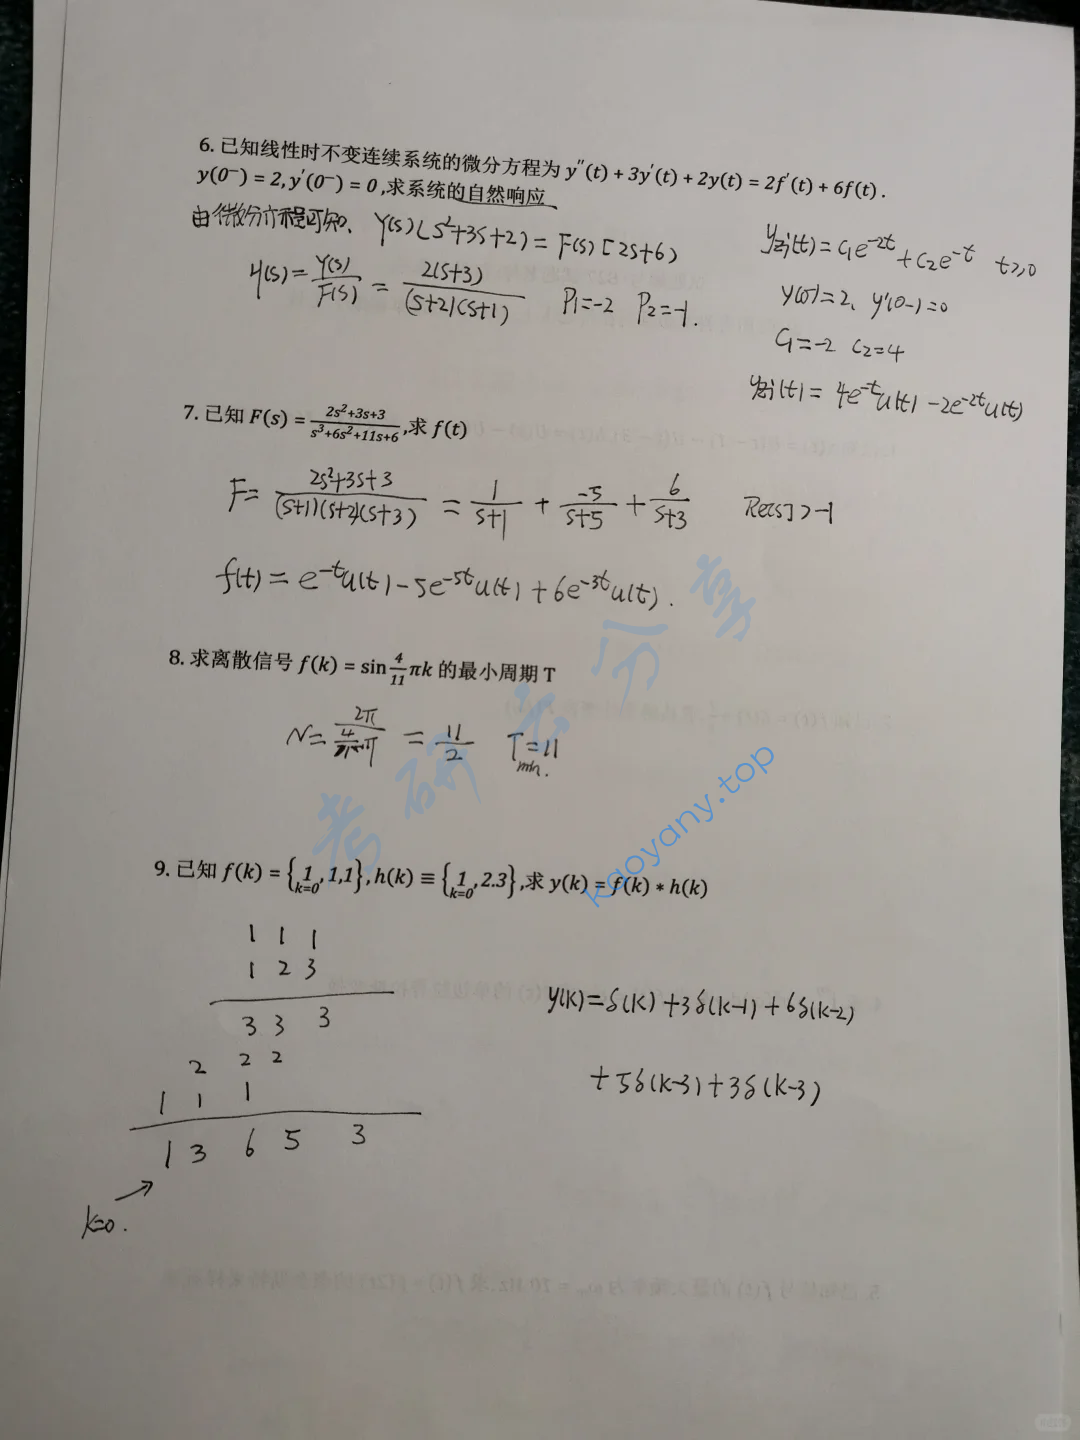 6. 已知线性时不变连续系统的微分方程为 y''(t) + 3y'(t) + 2y(t) = 2f'(t) + 6f(t) .
y(0⁻) = 2, y'(0⁻) = 0 ,求系统的自然响应
由微分方程可知、 Y(s)[s²+3s+2) = F(s)[2s+6)
H(s) = Y(s)/F(s) = 2(s+3)/(s+2)(s+1) P₁=-2 P₂=-1.
yzi(t) = C₁e^-2t + C₂e^-t t≥0
y(0⁻)=2, y'(0-)=0
C₁=-2 C₂=4
yzi(t) = 4e^-t u(t) - 2e^-2t u(t)
7. 已知 F(s) = (2s²+3s+3)/(s³+6s²+11s+6) ,求 f(t)
F= (2s²+3s+3)/((s+1)(s+2)(s+3)) = 1/(s+1) + -5/(s+5) + 6/(s+3) Re[s]>-1
f(t) = e^-t u(t) - 5e^-5t u(t) + 6e^-3t u(t) .
8. 求离散信号 f(k) = sin 4/11 πk 的最小周期 T
N= 2π/(4/11 π) = 11/2 Tmin. = 11
9. 已知 f(k) = {1,1,1}, h(k) ≡ {1,2.3} ,求 y(k) = f(k) * h(k)
k=0 k=0
1 1 1
1 2 3
3 3 3
2 2 2
1 1 1
1 3 6 5 3
k=0.
y(k)=δ(k)+3δ(k-1)+6δ(k-2)
+5δ(k-3)+3δ(k-3)
考研云分享
kaoyany.top